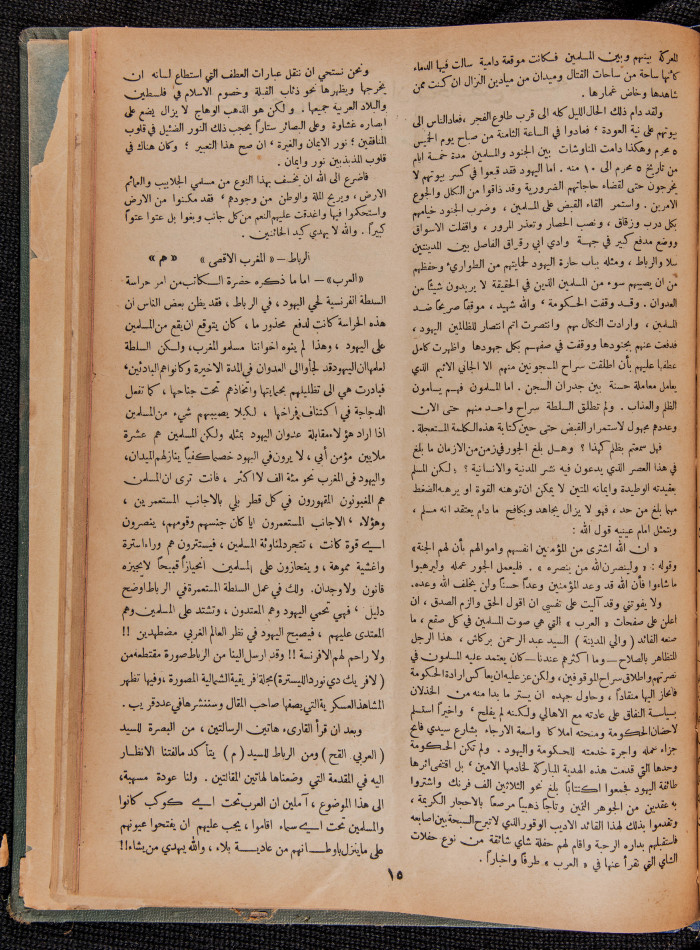 المعركة بينهم وبين المسلمين فكانت موقعة دامية سالت فيها الدماء
كأنها ساحة من ساحات القتال وميدان من ميادين النزال ان كنت ممن
شاهدها وخاض غمارها .
ولقد دام ذلك الحال الليل كله الى قرب طلوع الفجر ، فعاد الناس الى
بيوتهم على نية العودة ، فعادوا في الساعة الثامنة من صباح يوم الخميس
٥ محرم وهكذا دامت المناوشات بين الجنود والمسلمين مدة خمسة ايام
من تاريخ ٥ محرم الى ١٠ منه . اما اليهود فقد قبعوا في كسر بيوتهم لا
يخرجون حتى لقضاء حاجاتهم الضرورية وقد ذاقوا من النكل والجوع
الامرين . واستمر القاء القبض على المسلمين ، وضرب الجنود خيامهم
بكل درب وزقاق ، ونصب الحصار وتعذر المرور ، واقفلت الاسواق
ووضع مدفع كبير في جهة وادي ابي رقراق الفاصل بين المدينتين
سلا والرباط ، ومثله بباب حارة اليهود لحمايتهم من الطوارىء وحفظهم
من ان يصيبهم سوء من المسلمين الذين في الحقيقة لا يريدون شيئاً من
العدوان . وقد وقفت الحكومة ، والله شهيد ، موقفاً صريحاً ضد
المسلمين ، وارادت النكال بهم وانتصرت اتم انتصار للظالمين اليهود ،
فدفعت عنهم بجنودها ووقفت في صفهم بكل جهودها واظهرت كامل
عطفها عليهم بأن اطلقت سراح المسجونين منهم الا الجاني الاثيم الذي
يعامل معاملة حسنة بين جدران السجن . اما المسلمون فهم يسامون
الظلم والعذاب . ولم تطلق السلطة سراح واحد منهم حتى الان
وعددهم مجهول لاستمرار القبض حتى حين كتابة هذه الكلمة المستعجلة .
فهل سمعتم بظلم كهذا ؟ وهل بلغ الجور في زمن من الازمان ما بلغ
في هذا العصر الذي يدعون فيه نشر المدنية والانسانية ؟ ! لكن المسلم
بعقيدته الوطيدة وايمانه المتين لا يمكن ان توهنه القوة او يرهبه الضغط
مهما بلغ من حد ، فهو لا يزال يجاهد ويكافح ما دام يعتقد انه مسلم ،
ويتمثل امام عينيه قول الله :
« ان الله اشترى من المؤمنين انفسهم واموالهم بأن لهم الجنة»
وقوله : « ولينصرن الله من ينصره » . فليعمل الجور عمله وليرهبوا
ما شاءوا فأن الله قد وعد المؤمنين وعداً حسناً ولن يخلف الله وعده.
ولا يفوتني وقد آليت على نفسي ان اقول الحق والزم الصدق ، ان
اعلن على صفحات « العرب » التي هي صوت المسلمين في كل صقع ، ما
صنعه القائد ( والي المدينة ) السيد عبد الرحمن بركاش ، هذا الرجل
المتظاهر بالصلاح – وما اكثرهم عندنا – كان يعتمد عليه المسلمون في
نصرتهم واطلاق سراح الموقوفين ، ولكن عز عليه ان يعاكس ارادة الحكومة
فانحاز اليها منقاداً ، وحاول جهده ان يستر ما بدا منه من الخذلان
بسياسة النفاق على عادته مع الاهالي ولكنه لم يفلح ، واخيراً استسلم
لاحضان الحكومة ومنحته املاكا واسعة الارجاء بشارع سيدي فاتح
جزاء عمله واجرة خدمته للحكومة واليهود . ولم تكن الحكومة
وحدها التي قدمت هذه الهدية المباركة لخادمها الامين ، بل اقتفى اثرها
طائفة اليهود فجمعوا اكتتاباً بلغ نحو الثلاثين الف فرنك واشتروا
به عقدين من الجوهر الثمين وتاجاً ذهبياً مرصعاً بالاحجار الكريمة ،
وتقدموا بذلك لهذا القائد الاديب الوقور الذي لا تبرح السبحة بين اصابعه
فاستقبلهم بداره الرحبة واقام لهم حفلة شاي شائقة من نوع حفلات
الشاي التي نقرأ عنها في « العرب » طرفاً واخباراً .
ونحن نستحي ان ننقل عبارات العطف التي استطاع لسانه ان
يخرجها ويظهرها نحو ذئاب القبلة وخصوم الاسلام في فلسطين
والبلاد العربية جميعها . ولكن هو الذهب الوهاج لا يزال يضع على
ابصاره غشاوة وعلى البصائر ستاراً يحجب ذلك النور الضئيل في قلوب
المنافقين : نور الايمان والغيرة ، ان صح هذا التعبير ؛ وكان هناك في
قلوب المذبذبين نور وايمان .
فاضرع الى الله ان يخسف بهذا النوع من مسلمي الجلابيب والعمائم
الارض ، ويريح الملة والوطن من وجودهم ، فقد مكنوا من الارض
واستحكموا فيها واغدقت عليهم النعم من كل جانب وبغوا بل عتوا عتواً
كبيراً . والله لا يهدي كيد الخائنين .
الرباط – « المغرب الاقصى » « م »
«العرب» – اما ما ذكره حضرة الكاتب من امر حراسة
السلطة الفرنسية لحي اليهود ، في الرباط ، فقد يظن بعض الناس ان
هذه الحراسة كانت لدفع محذور ما ، كان يتوقع ان يقع من المسلمين
على اليهود ، وهذا لم ينوه اخواننا مسلمو المغرب، ولكن السلطة
لعلمها ان اليهود قد لجأوا الى العدوان في المدة الاخيرة وكانوا هم البادئين،
فبادرت هي الى تظليلهم بحمايتها واتخاذهم تحت جناحها ، كما تفعل
الدجاجة في اكتناف فراخها ، لكيلا يصيبهم شيء من المسلمين
اذا اراد هؤلاء مقابلة عدوان اليهود بمثله ولكن المسلمين هم عشرة
ملايين مؤمن أبي ، لا يرون في اليهود خصما كفيئاً ينازلهم الميدان،
واليهود في المغرب نحو مئة الف لا اكثر ، فانت ترى ان المسلمين
هم المغبونون المقهورون في كل قطر بلي بالاجانب المستعمرين ،
وهؤلاء ' الاجانب المستعمرون ايا كان جنسهم وقومهم، ينصرون
اية قوة كانت ، تتجرد لمناوئة المسلمين ، فيستترون هم وراء استرة
واغشية مموهة ، وينحازون على المسلمين انحيازاً قبيحاً لا يجيزه
قانون ولا وجدان. ولك في عمل السلطة المستعمرة في الرباط اوضح
دليل ' فهي تحمي اليهود وهم المعتدون ، وتشتد على المسلمين وهم
المعتدى عليهم ، فيصبح اليهود في نظر العالم الغربي مضطهدين !!
ولا راحم لهم الا فرنسة !! وقد ارسل الينا من الرباط صورة مقتطعة من
( لافريك دي نورد الليسترة ) مجلة افريقية الشمالية المصورة ، وفيها تظهر
المشاهد العسكرية التي يصفها صاحب المقال وسننشرها في عدد قريب .
وبعد ان قرأ القارىء هاتين الرسالتين ، من البصرة للسيد
( العربي القح ) ومن الرباط للسيد ( م ) يتأكد ما لفتنا الانظار
اليه في المقدمة التي وضعناها لهاتين المقالتين . ولنا عودة مسهبة،
الى هذا الموضوع ، آملين ان العرب تحت اي كوكب كانوا
والمسلمين تحت اي سماء اقاموا ، يجب عليهم ان يفتحوا عيونهم
على ما ينزل باوطانهم من عادية بلاء ، والله يهدي من يشاء !!
١٥